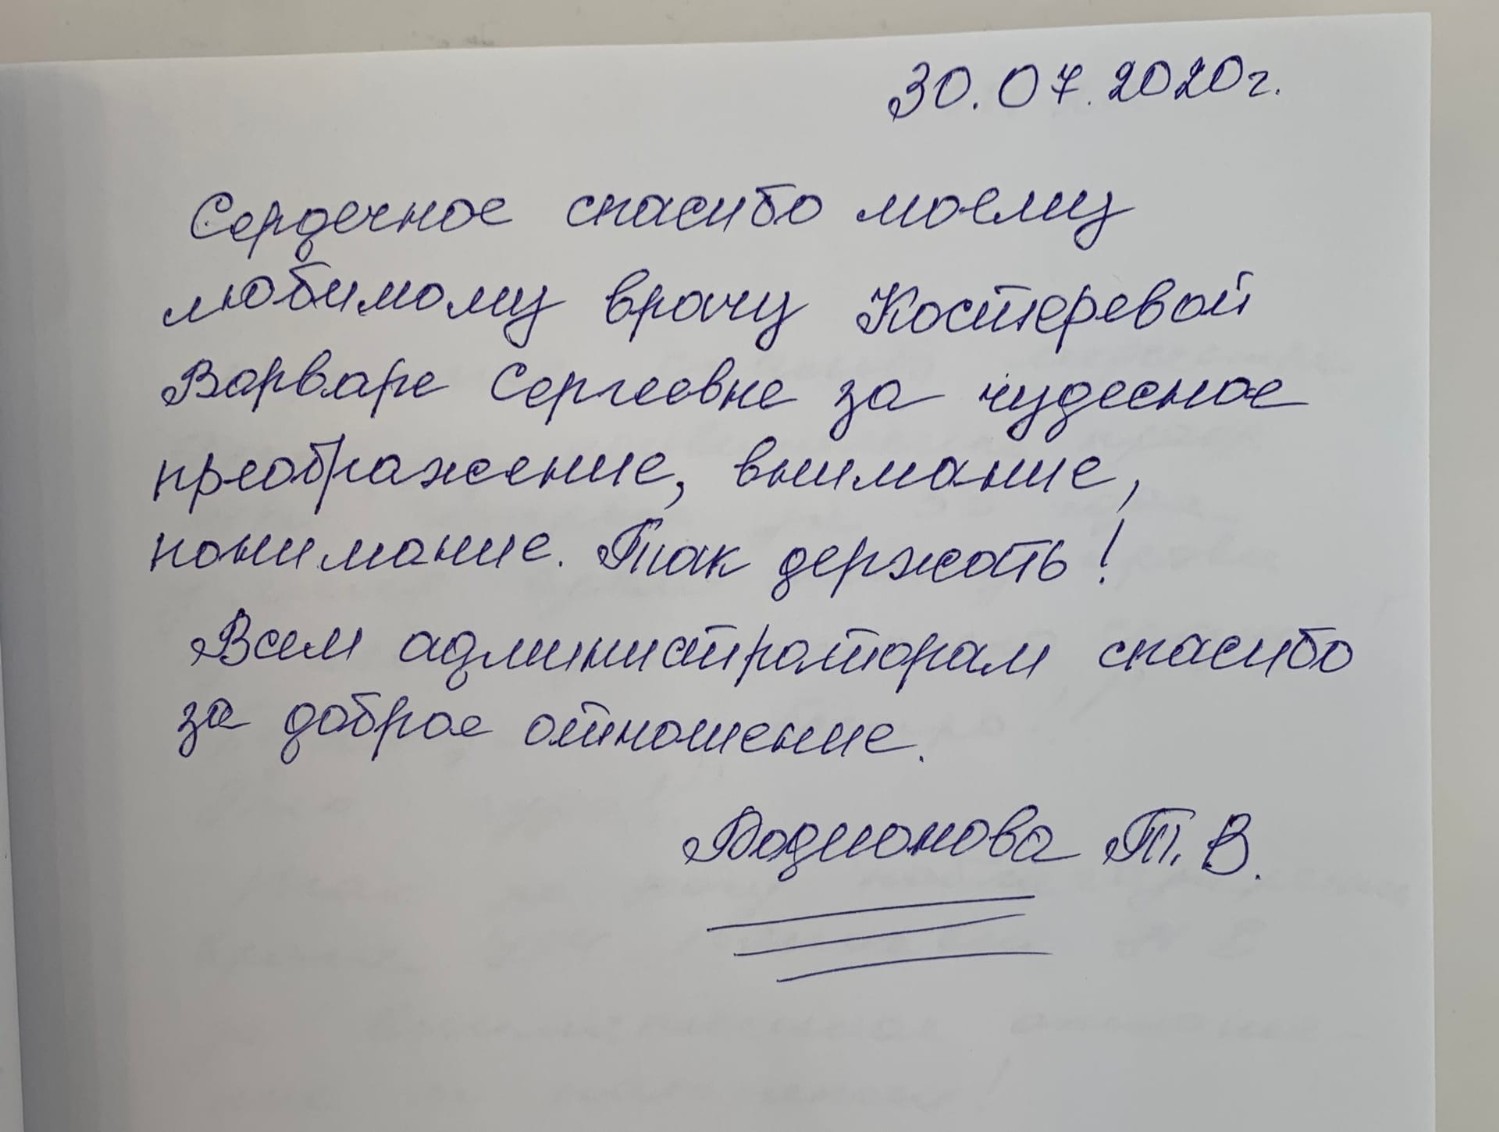 30.07.2020г.
Сердечное спасибо моему
любимому врачу Костеревой
Варваре Сергеевне за чудесное
преображение, внимание,
понимание. Так держать!
Всем администраторам спасибо
за доброе отношение.
Родионова Т.В.